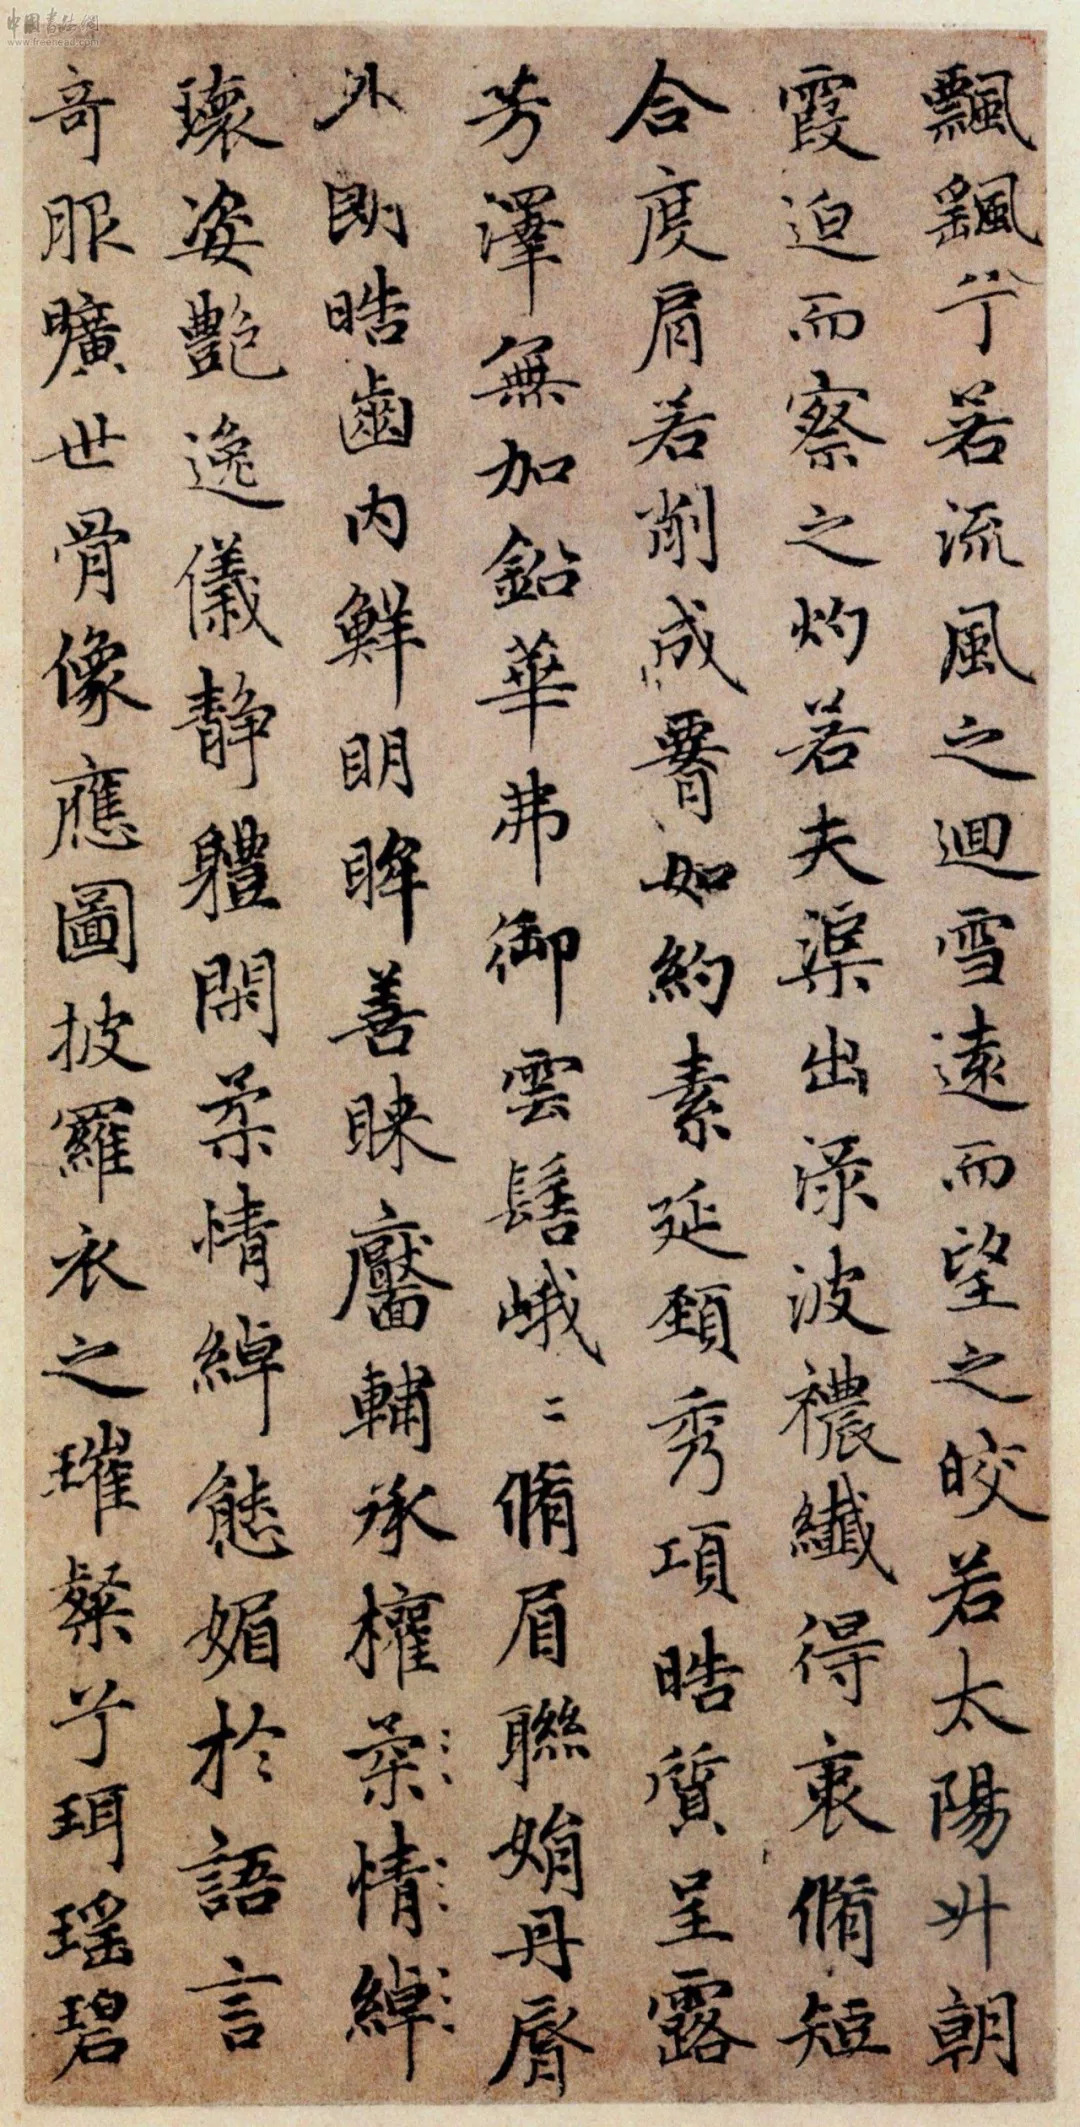 中國書法網
www.freehead.com
飄飖兮若流風之迴雪遠而望之皎若太陽升朝
霞迫而察之灼若夫渠出渌波襛纖得衷脩短
合度肩若削成𦝫如約素延頸秀項皓質呈露
芳澤無加鉛華弗御雲髻峨〻脩眉聯娟丹脣
外朗皓齒內鮮明眸善睞靨輔承權柔情綽
瓌姿艷逸儀靜體閑柔情綽態媚於語言
奇服曠世骨像應圖披羅衣之璀粲兮珥瑤碧